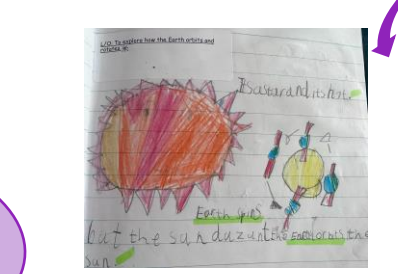 L/O: To explore how the Earth orbits and
rotates
Itsastarandit's hot.
Earth spins
but the sun duzunt the earth orbits the
sun.